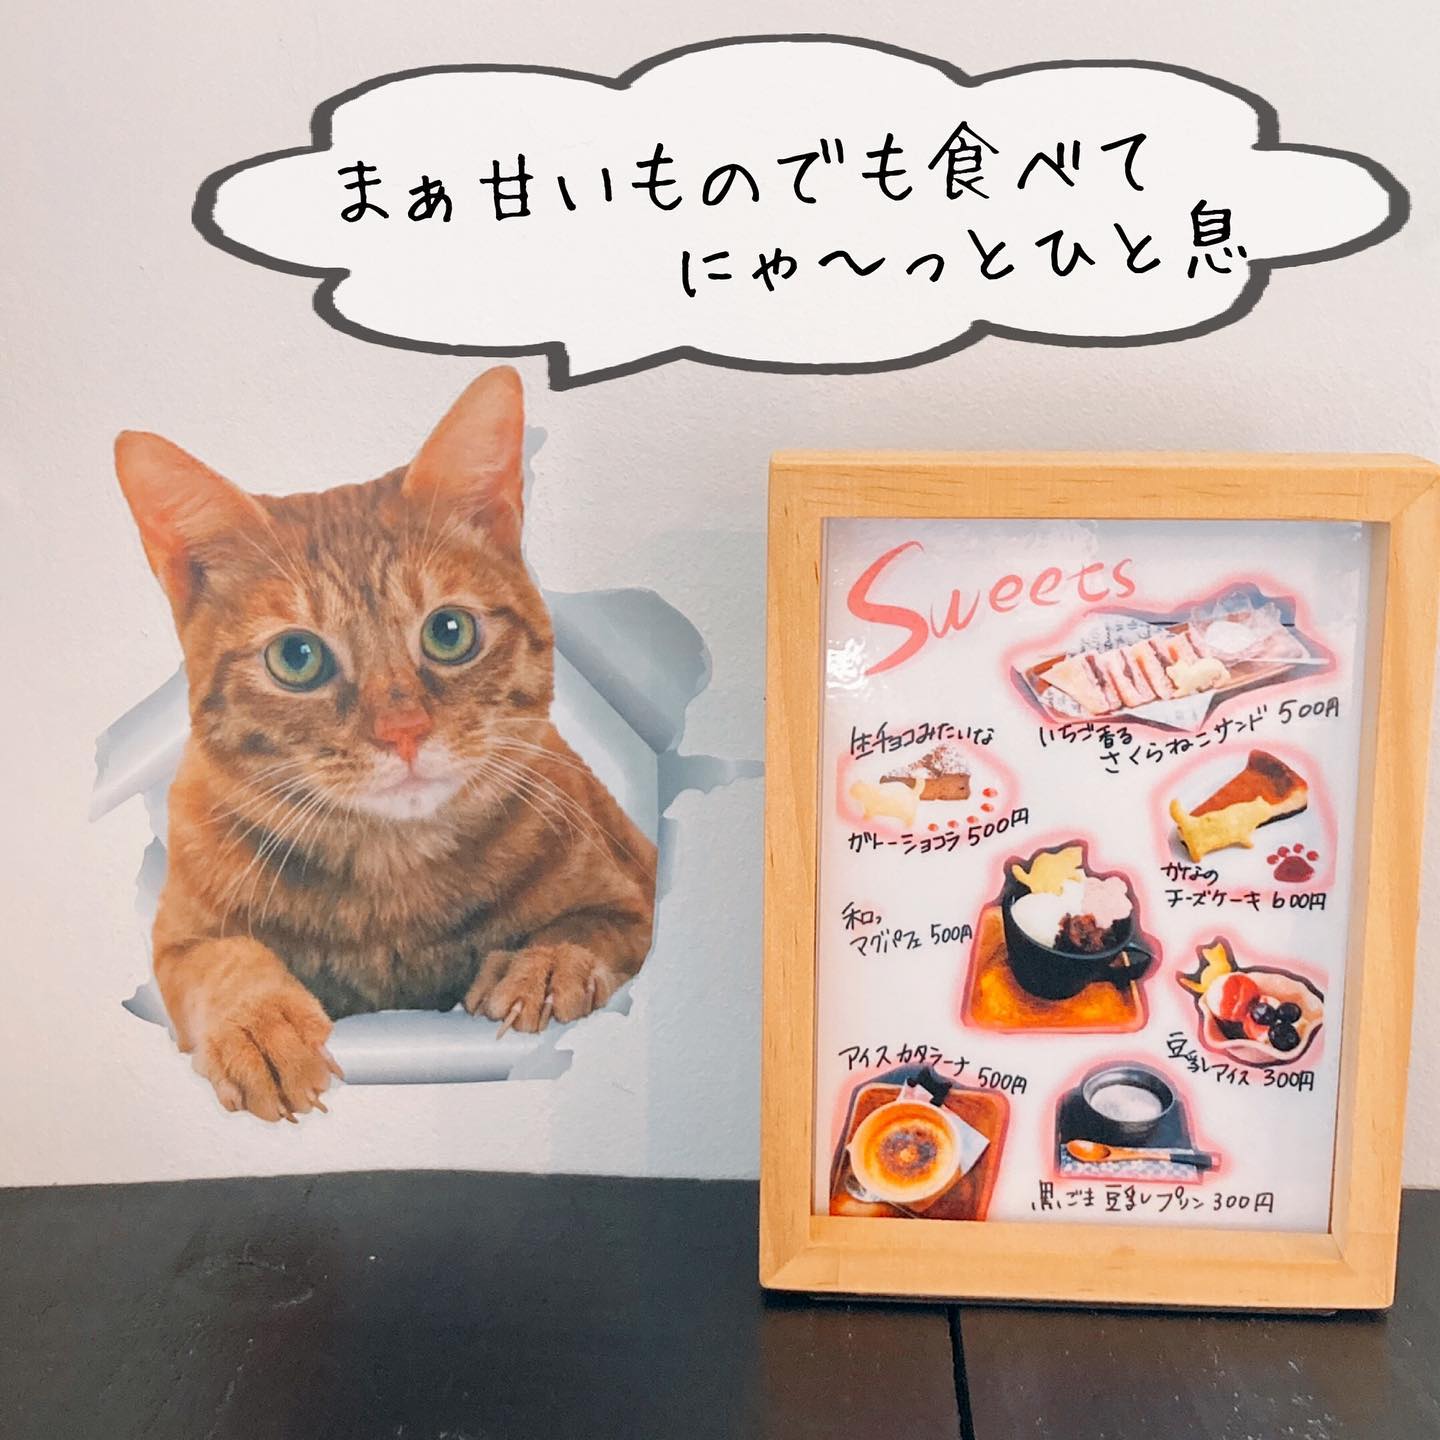 まぁ甘いものでも食べて
にゃ〜っとひと息
Sweets
いちご香る
さくらねこサンド 500円
生チョコみたいな
ガトーショコラ 500円
かなの
チーズケーキ 600円
和ッ
マグパフェ 500円
豆乳アイス 300円
アイスカタラーナ 500円
黒ごま豆乳プリン 300円